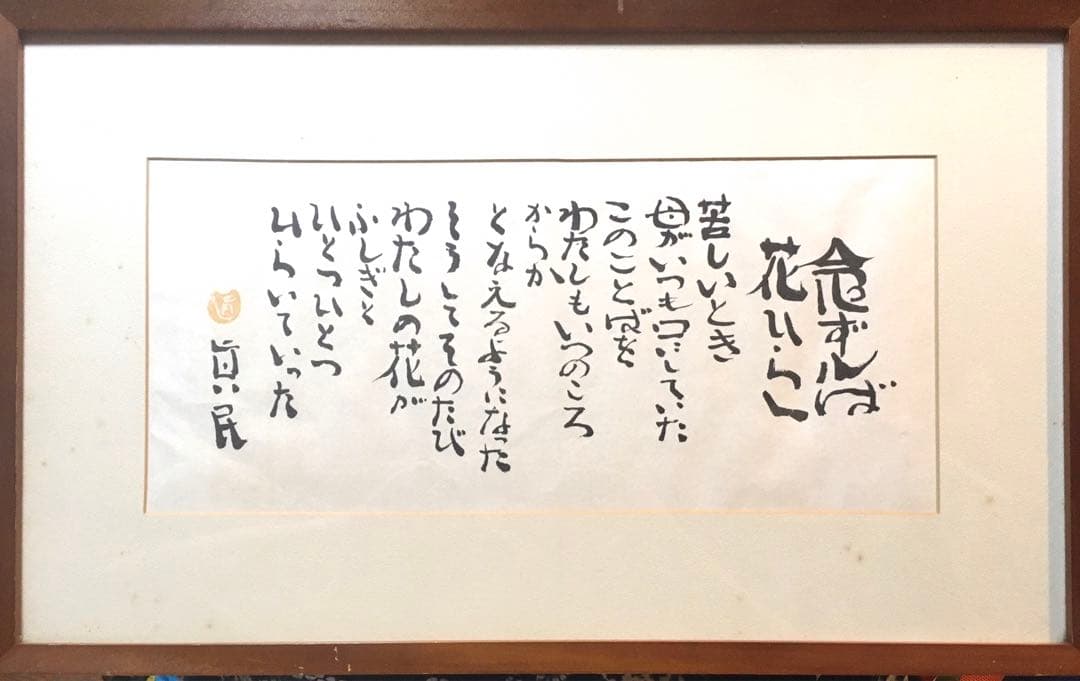 念ずれば
花ひらく
苦しいとき
母がいつも口にしていた
このことばを
わたしもいつのころ
からか
となえるようになった
そうしてそのたび
わたしの花が
ふしぎと
ひとつひとつ
ひらいていった
眞民